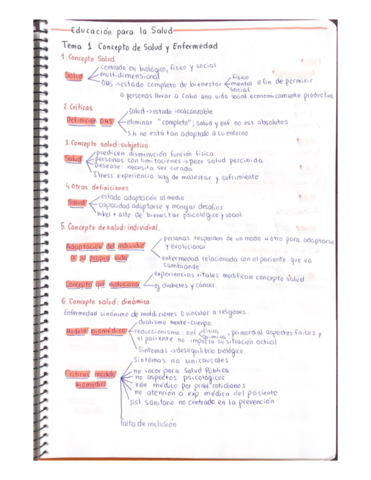 Educación para la Salud
Tema 1 Concepto de Salud y Enfermedad
1. Concepto Salud
Salud
centrado en biológico, físico y social
multidimensional
OMS → estado completo de bienestar
físico
mental
social
a fin de permitir
a personas llevar a cabo una vida social económicamente productiva
2. Críticas
Definición OMS
salud → estado inalcanzable
eliminar "completo"; salud y enf. no est. absolutos
s.h no está tan adaptado a su entorno
3. Concepto salud: subjetivo
Salud
predicen disminución función física
personas con limitaciones → peor salud percibida
Desease: necesita ser curada
Illness: experiencia subj de malestar y sufrimiento
4. Otras definiciones
Salud
estado adaptación al medio
capacidad adaptarse y manejar desafíos
nivel + alto de bienestar psicológico y social
5. Concepto de salud: individual
Adaptación del individuo a su propia vida
personas responden de un modo u otro para adaptarse
y evolucionar
enfermedad relacionada con el paciente que va
cambiando
Concepto que evoluciona
experiencias vitales modifican concepto salud
ej diabetes y cáncer
6. Concepto salud: dinámica
Enfermedad sinónimo de maldiciones o vincular a religiones.
Modelo biomédico
dualismo mente-cuerpo
reduccionismo: enf
físico
químico
, primordial aspectos físicos y
el paciente no importa su situación actual
Síntomas → desequilibrio biológico
Críticas modelo biomédico
Síntomas no unicausales
no incorpora Salud Pública
no aspectos psicológicos
no atención a exp médica del paciente
sist. sanitario no centrado en la prevención
falta de inclusión